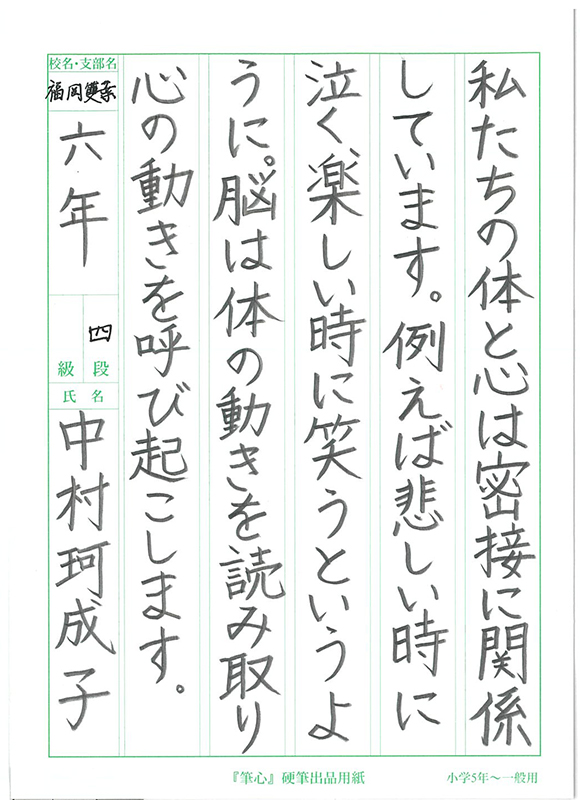 私たちの体と心は密接に関係
しています。例えば悲しい時に
泣く、楽しい時に笑うというよ
うに。脳は体の動きを読み取り
心の動きを呼び起こします。
校名・支部名
福岡雙葉
六年
四
級 段
氏 名
中村珂成子
『筆心』硬筆出品用紙
小学5年〜一般用